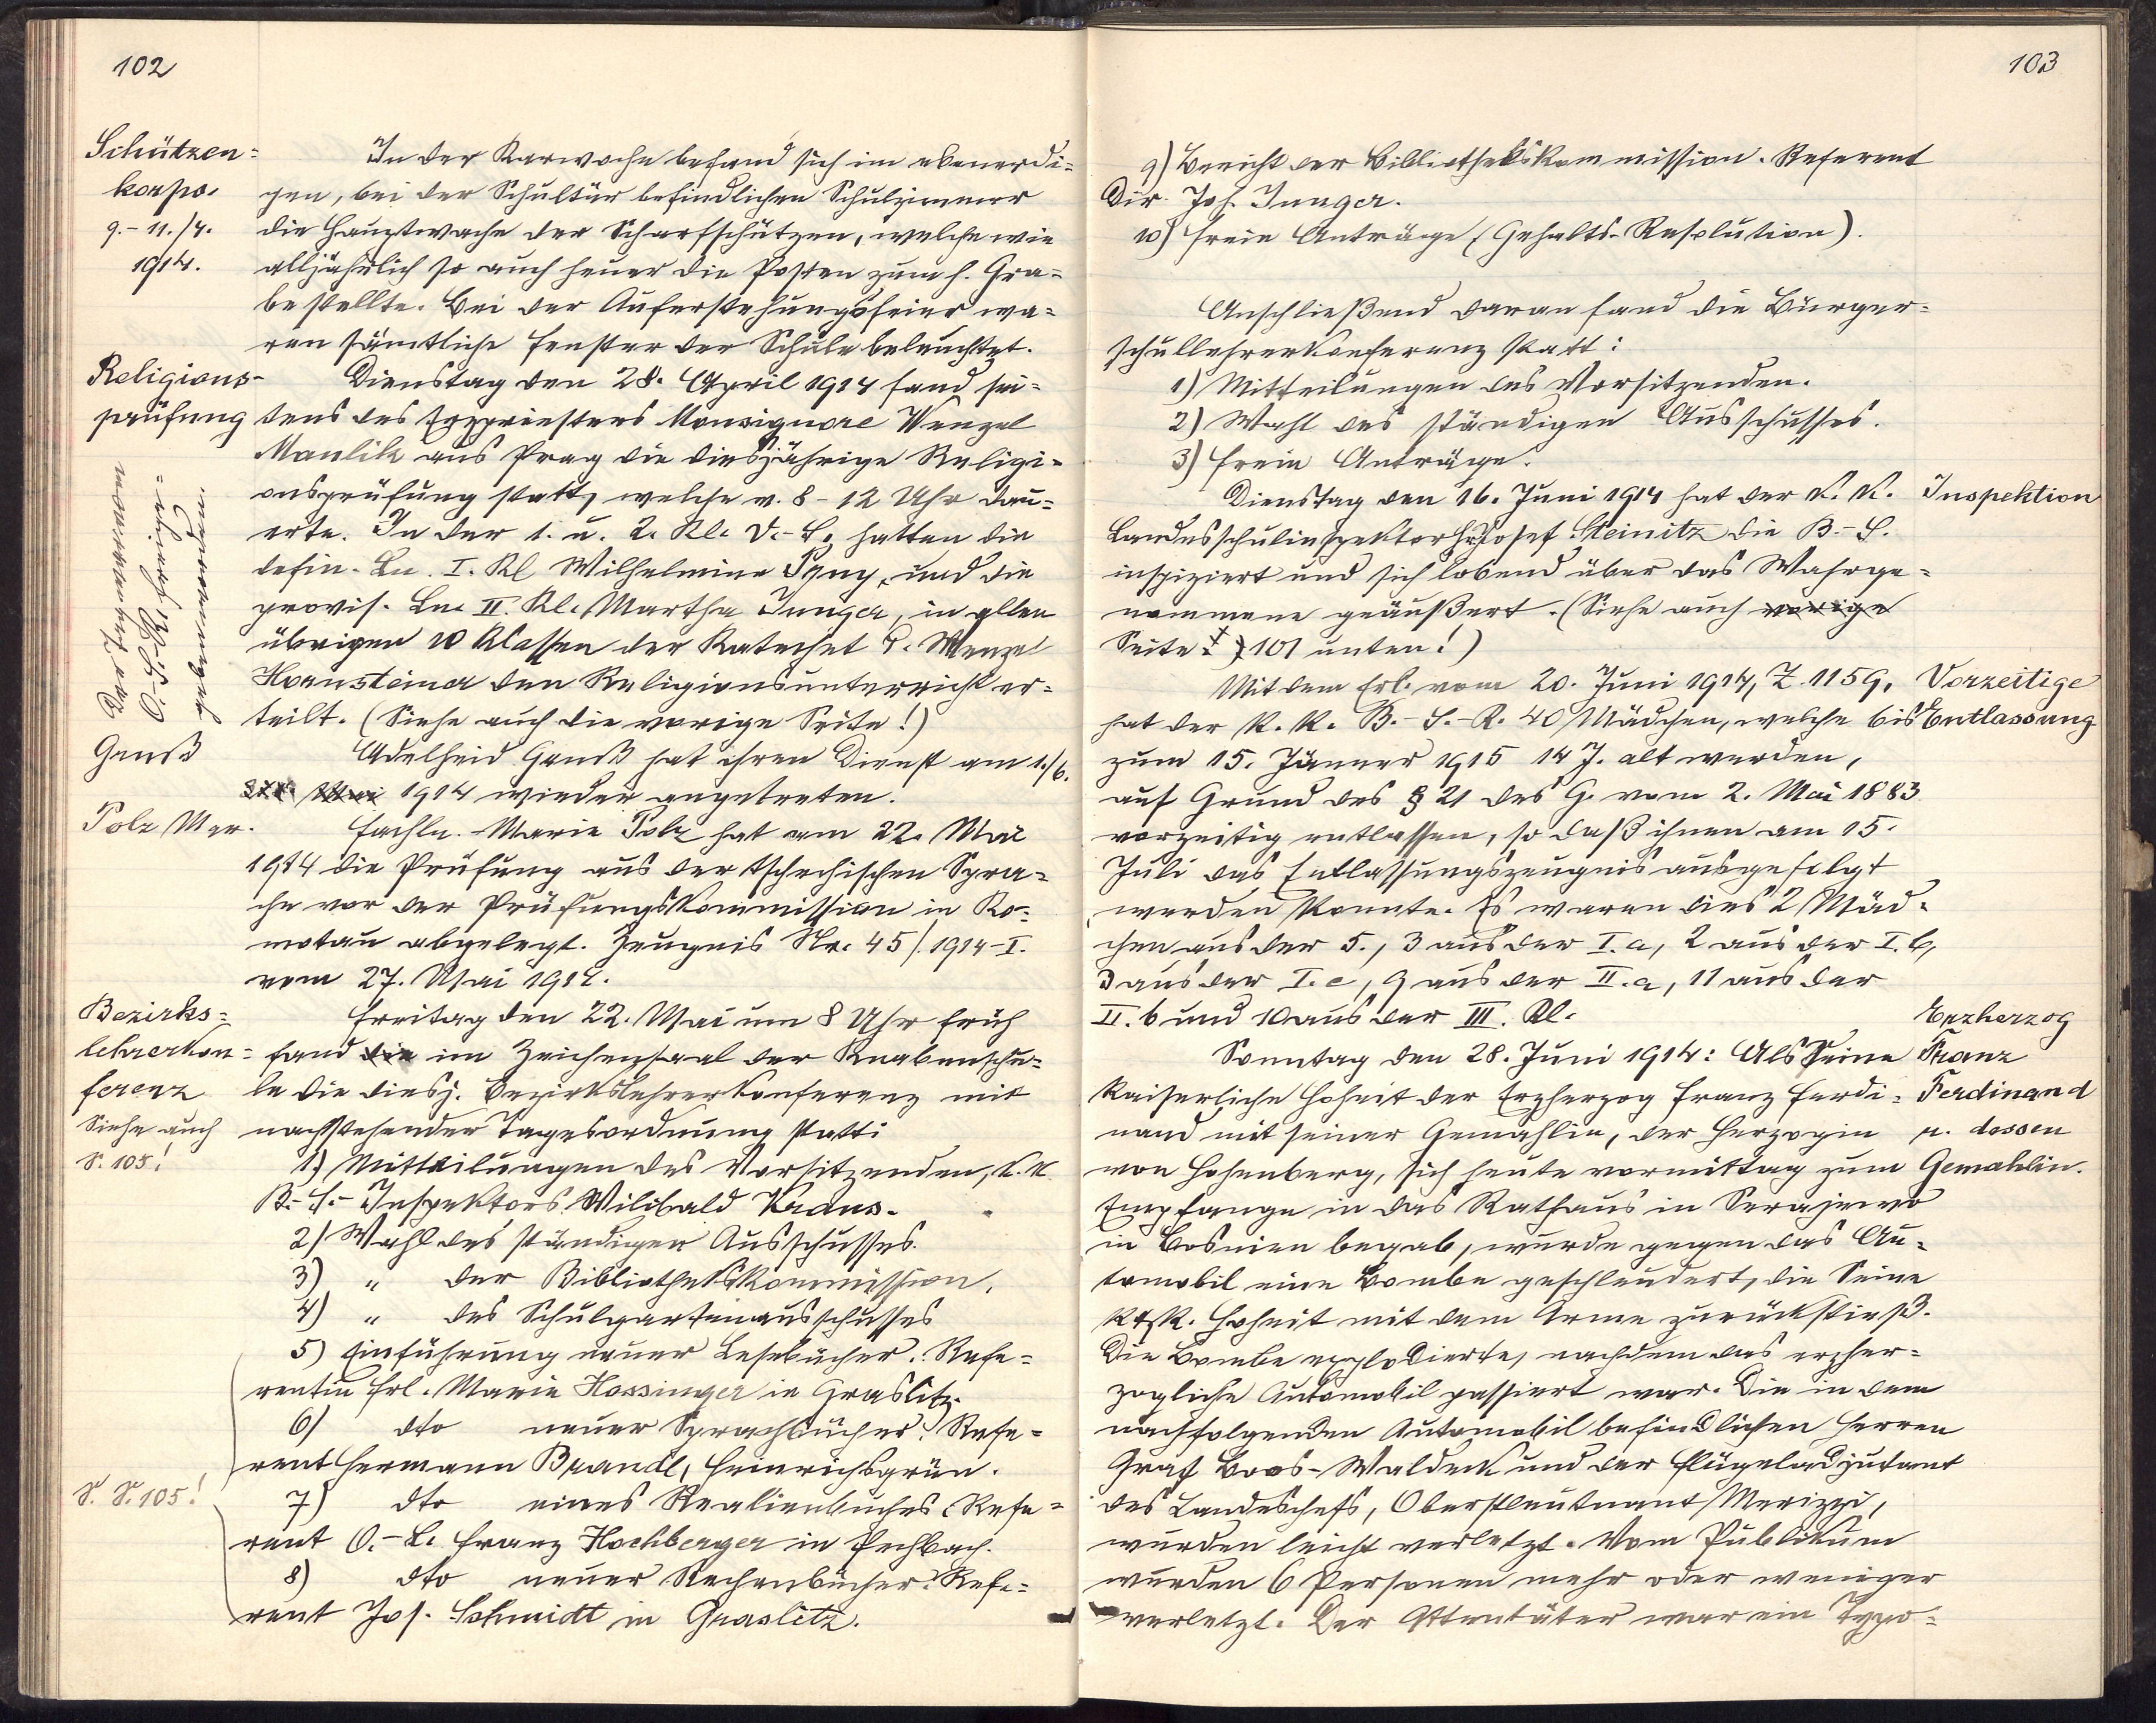 102
Schützen=
korps.
9.-11./4.
1914.
In der Karwoche befand sich im ebenerdi=
gen, bei der Schultür befindlichen Schulzimmer
die Hauptwache der Scharfschützen, welche wie
alljährlich so auch heuer die Posten zum h. Gra=
be stellte. Bei der Auferstehungsfeier wa=
ren sämtliche Fenster der Schule beleuchtet.
Religions-
prüfung
Dienstag den 28. April 1914 fand sei=
tens des Erzpriesters Monsignore Wenzel
Maulik aus Prag die diesjährige Religi=
onsprüfung statt, welche v. 8-12 Uhr dau=
erte. In der 1. u. 2. Kl. V.-S. hatten die
defin. Ln. I. Kl Wilhelmine Pzny, und die
provis. Ln. II. Kl. Martha Junger, in allen
übrigen 10 Klassen der Katechet P. Wenzel
Hornsteiner den Religionsunterricht er=
teilt. (Siehe auch die vorige Seite!)
Genß
Adelheid Genß hat ihren Dienst am 1./6.
Mai 1914 wieder angetreten.
Polz Mar.
Fachln. Marie Polz hat am 22. Mai
1914 die Prüfung aus der tschechischen Spra=
che vor der Prüfungskommission in Ko=
motau abgelegt. Zeugnis Nr. 45/.1914-I.
vom 27. Mai 1914.
Bezirks=
lehrerkon=
ferenz
Siehe auch
S. 105!
Freitag den 22. Mai um 8 Uhr früh
fand die im Zeichensaal der Knabenschu=
le die diesj. Bezirkslehrerkonferenz mit
nachstehender Tagesordnung statt:
1.) Mitteilungen des Vorsitzenden, k. k.
B.-S.-Inspektors Wilibald Kraus.
2) Wahl des ständigen Ausschusses.
3) " der Bibliothekskommission.
4) " des Schulgartenausschusses
5) Einführung neuer Lesebücher. Refe=
rentin Frl. Marie Hossinger in Graslitz.
6) dto neuer Sprachbücher. Refe=
rent Hermann Brandl, Heinrichsgrün.
S. S. 105!
7) dto eines Realienbuches. Refe=
rent O.-L. Franz Hochberger in Pechbach.
8) dto neuer Rechenbücher. Refe=
rent Jos. Schmidt in Graslitz.
103
9) Bericht der Bibliothekskommission. Referent
Dir. Jos. Junger.
10) Freie Anträge (Gehalts-Resolution).
Anschließend daran fand die Bürger=
schullehrerkonferenz statt:
1) Mitteilungen des Vorsitzenden.
2) Wahl des ständigen Ausschusses.
3) Freie Anträge.
Dienstag den 16. Juni 1914 hat der k. k.
Inspektion
Landesschulinspektor H. Josef Steinitz die B.-S.
inspiziert und sich lobend über das Wahrge=
nommene geäußert. (Siehe auch vorige
Seite 101 unten!)
Mit dem Erl. vom 20. Juni 1914, Z. 1159,
Vorzeitige
Entlassung
hat der k. k. B.-S.-R. 40 Mädchen, welche bis
zum 15. Jänner 1915 14 J. alt werden,
auf Grund des § 21 des G. vom 2. Mai 1883
vorzeitig entlassen, so daß ihnen am 15.
Juli das Entlassungszeugnis ausgefolgt
werden konnte. Es waren dies 2 Mäd=
chen aus der 5., 3 aus der I.a, 2 aus der I.b,
3 aus der I.c, 9 aus der II.a, 11 aus der
II.b und 10 aus der III. Kl.
Erzherzog
Franz
Ferdinand
u. dessen
Gemahlin.
Sonntag den 28. Juni 1914: Als Seine
Kaiserliche Hoheit der Erzherzog Franz Ferdi=
nand mit seiner Gemahlin, der Herzogin
von Hohenberg, sich heute vormittag zum
Empfange in das Rathaus in Serajewo
in Bosnien begab, wurde gegen das Au=
tomobil eine Bombe geschleudert, die Seine
K. Hoheit mit dem Arme zurückstieß.
Die Bombe explodierte, nachdem das erzher=
zogliche Automobil passiert war. Die in dem
nachfolgenden Automobil befindlichen Herren
Graf Boos-Waldeck und der Flügeladjutant
des Landeschefs, Oberstleutnant Merizzi,
wurden leicht verletzt. Vom Publikum
wurden 6 Personen mehr oder weniger
verletzt. Der Attentäter war ein Typo=